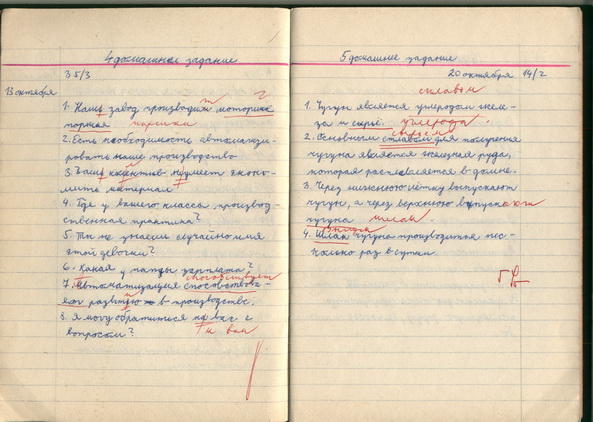 4 домашнее задание
35/3
13 октября
1. Наш завод производит моторы
поршни
2. Есть необходимость автоматизи-
ровать наше производство
умеет эконо-
мить материал
4. Где у вашего класса производ-
ственная практика?
5. Ты не знаешь случайно имя
этой девочки?
6. Какая у папы зарплата?
способствует
7. Автоматизация
развитию в производстве.
8. Я могу обратиться на вас с
к вам
вопросом?
5 домашнее задание
20 октября 14/2
сплавом
1. Чугун является углеродом желе-
за и сырьё. углерода
сырьём
2. Основным сплавом для получения
чугуна является железная руда,
которая расплавляется в домне.
3. Через нижнюю лётку выпускают
чугун, а через верхнюю выпускают
чугуна шлак
Выпуск
4. Шлак чугуна производится нес-
колько раз в сутки.